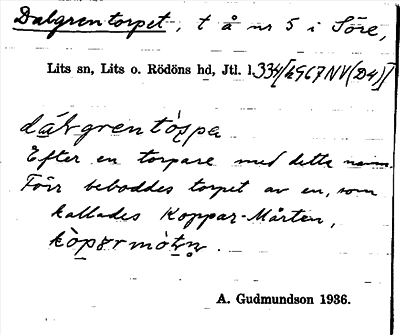 Dalgrentorpet, t å nr 5 i Söre,
Lits sn, Lits o. Rödöns hd, Jtl. l. 334 [19G7NV(D4)]
dálgrentòrpa
Efter en torpare med detta namn.
Förr beboddes torpet av en, som
kallades Koppar-Mårten,
A. Gudmundson 1936.